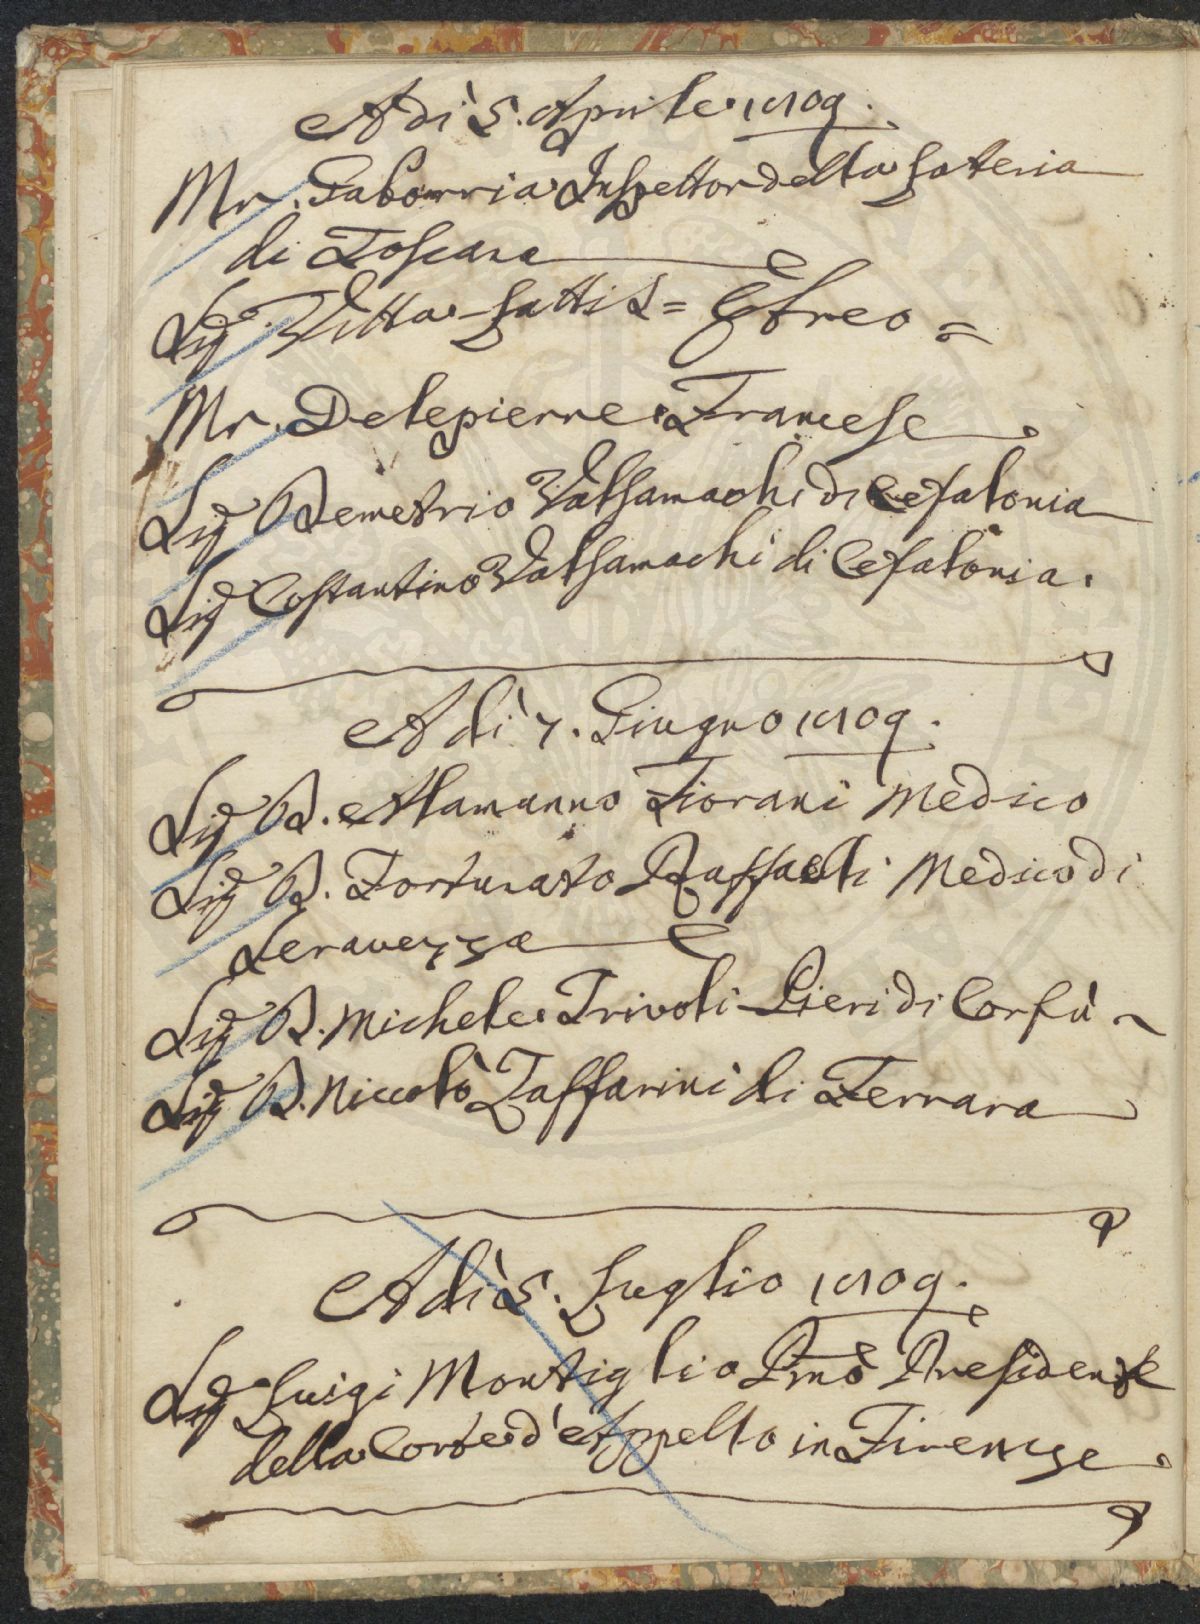 Adì 5. Aprile 1809.
Mr. Gaborria Inspettor della
di Toscana
Sig.r Vitta Ebreo =
Mr. Delepierre Francese
Sig.r D. Demetrio Valsamachi di Cefalonia
Sig.r Costantino Valsamachi di Cefalonia.
A dì 7. Giugno 1809.
Sig.r D. Alamanno Fiorani Medico
Sig.r D. Fortunato Raffaelli Medico di
Seravezza
Sig.r D. Michele Trivoli Pieri di Corfù
Sig.r D. Niccolò Zaffarini di Ferrara
Adì 5. Luglio 1809.
Sig.r Luigi Montiglio Pmo Presidente
della Corte d'Appello in Firenze